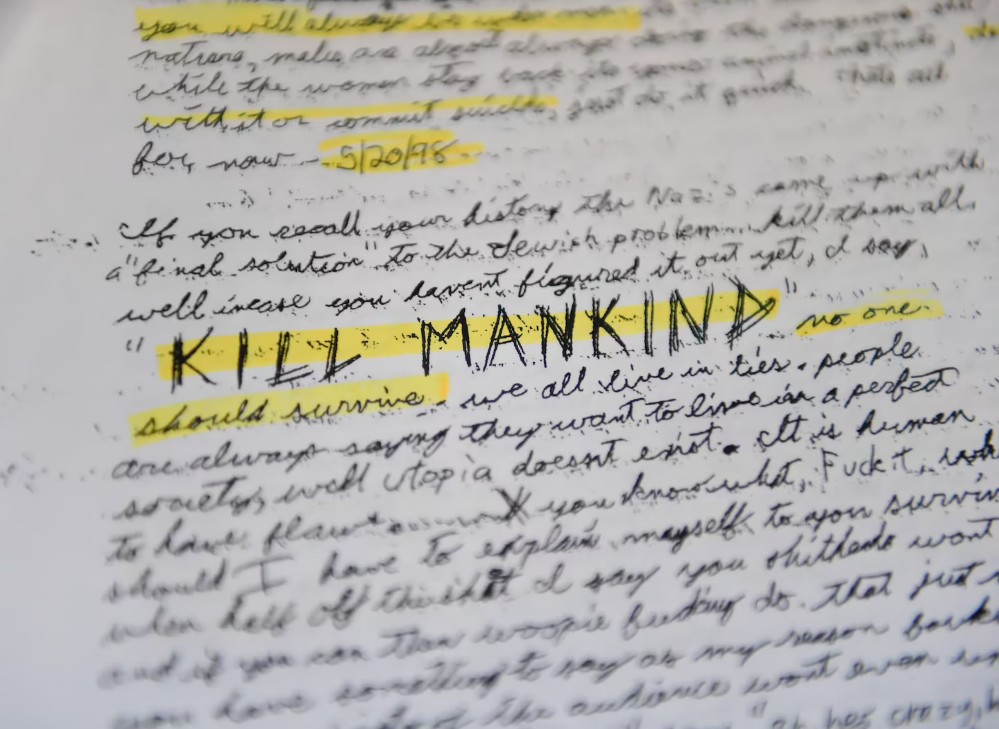 you will always be under
nations, males are almost always doing the dangerous
while the women stay back its animal instincts,
with it or commit suicide, just do it quick. thats all
for, now - 5/20/98
"If you recall your history the Nazis came up with
a "final solution" to the Jewish problem.... kill them all.
well incase you havent figured it out yet, I say,
" KILL MANKIND" no one
should survive. we all live in lies. people
are always saying they want to live in a perfect
society, well utopia doesnt exist. It is human
to have flaws. you know what, Fuck it, why
should I have to explain myself to you survivors
when half of this shit I say you shitheads wont
and if you can then woopie fucking do. that just
you have something to say as my reason
of the audience wont even
crazy,